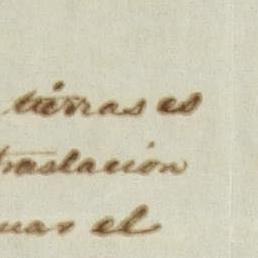 tierras es
traslacion
el